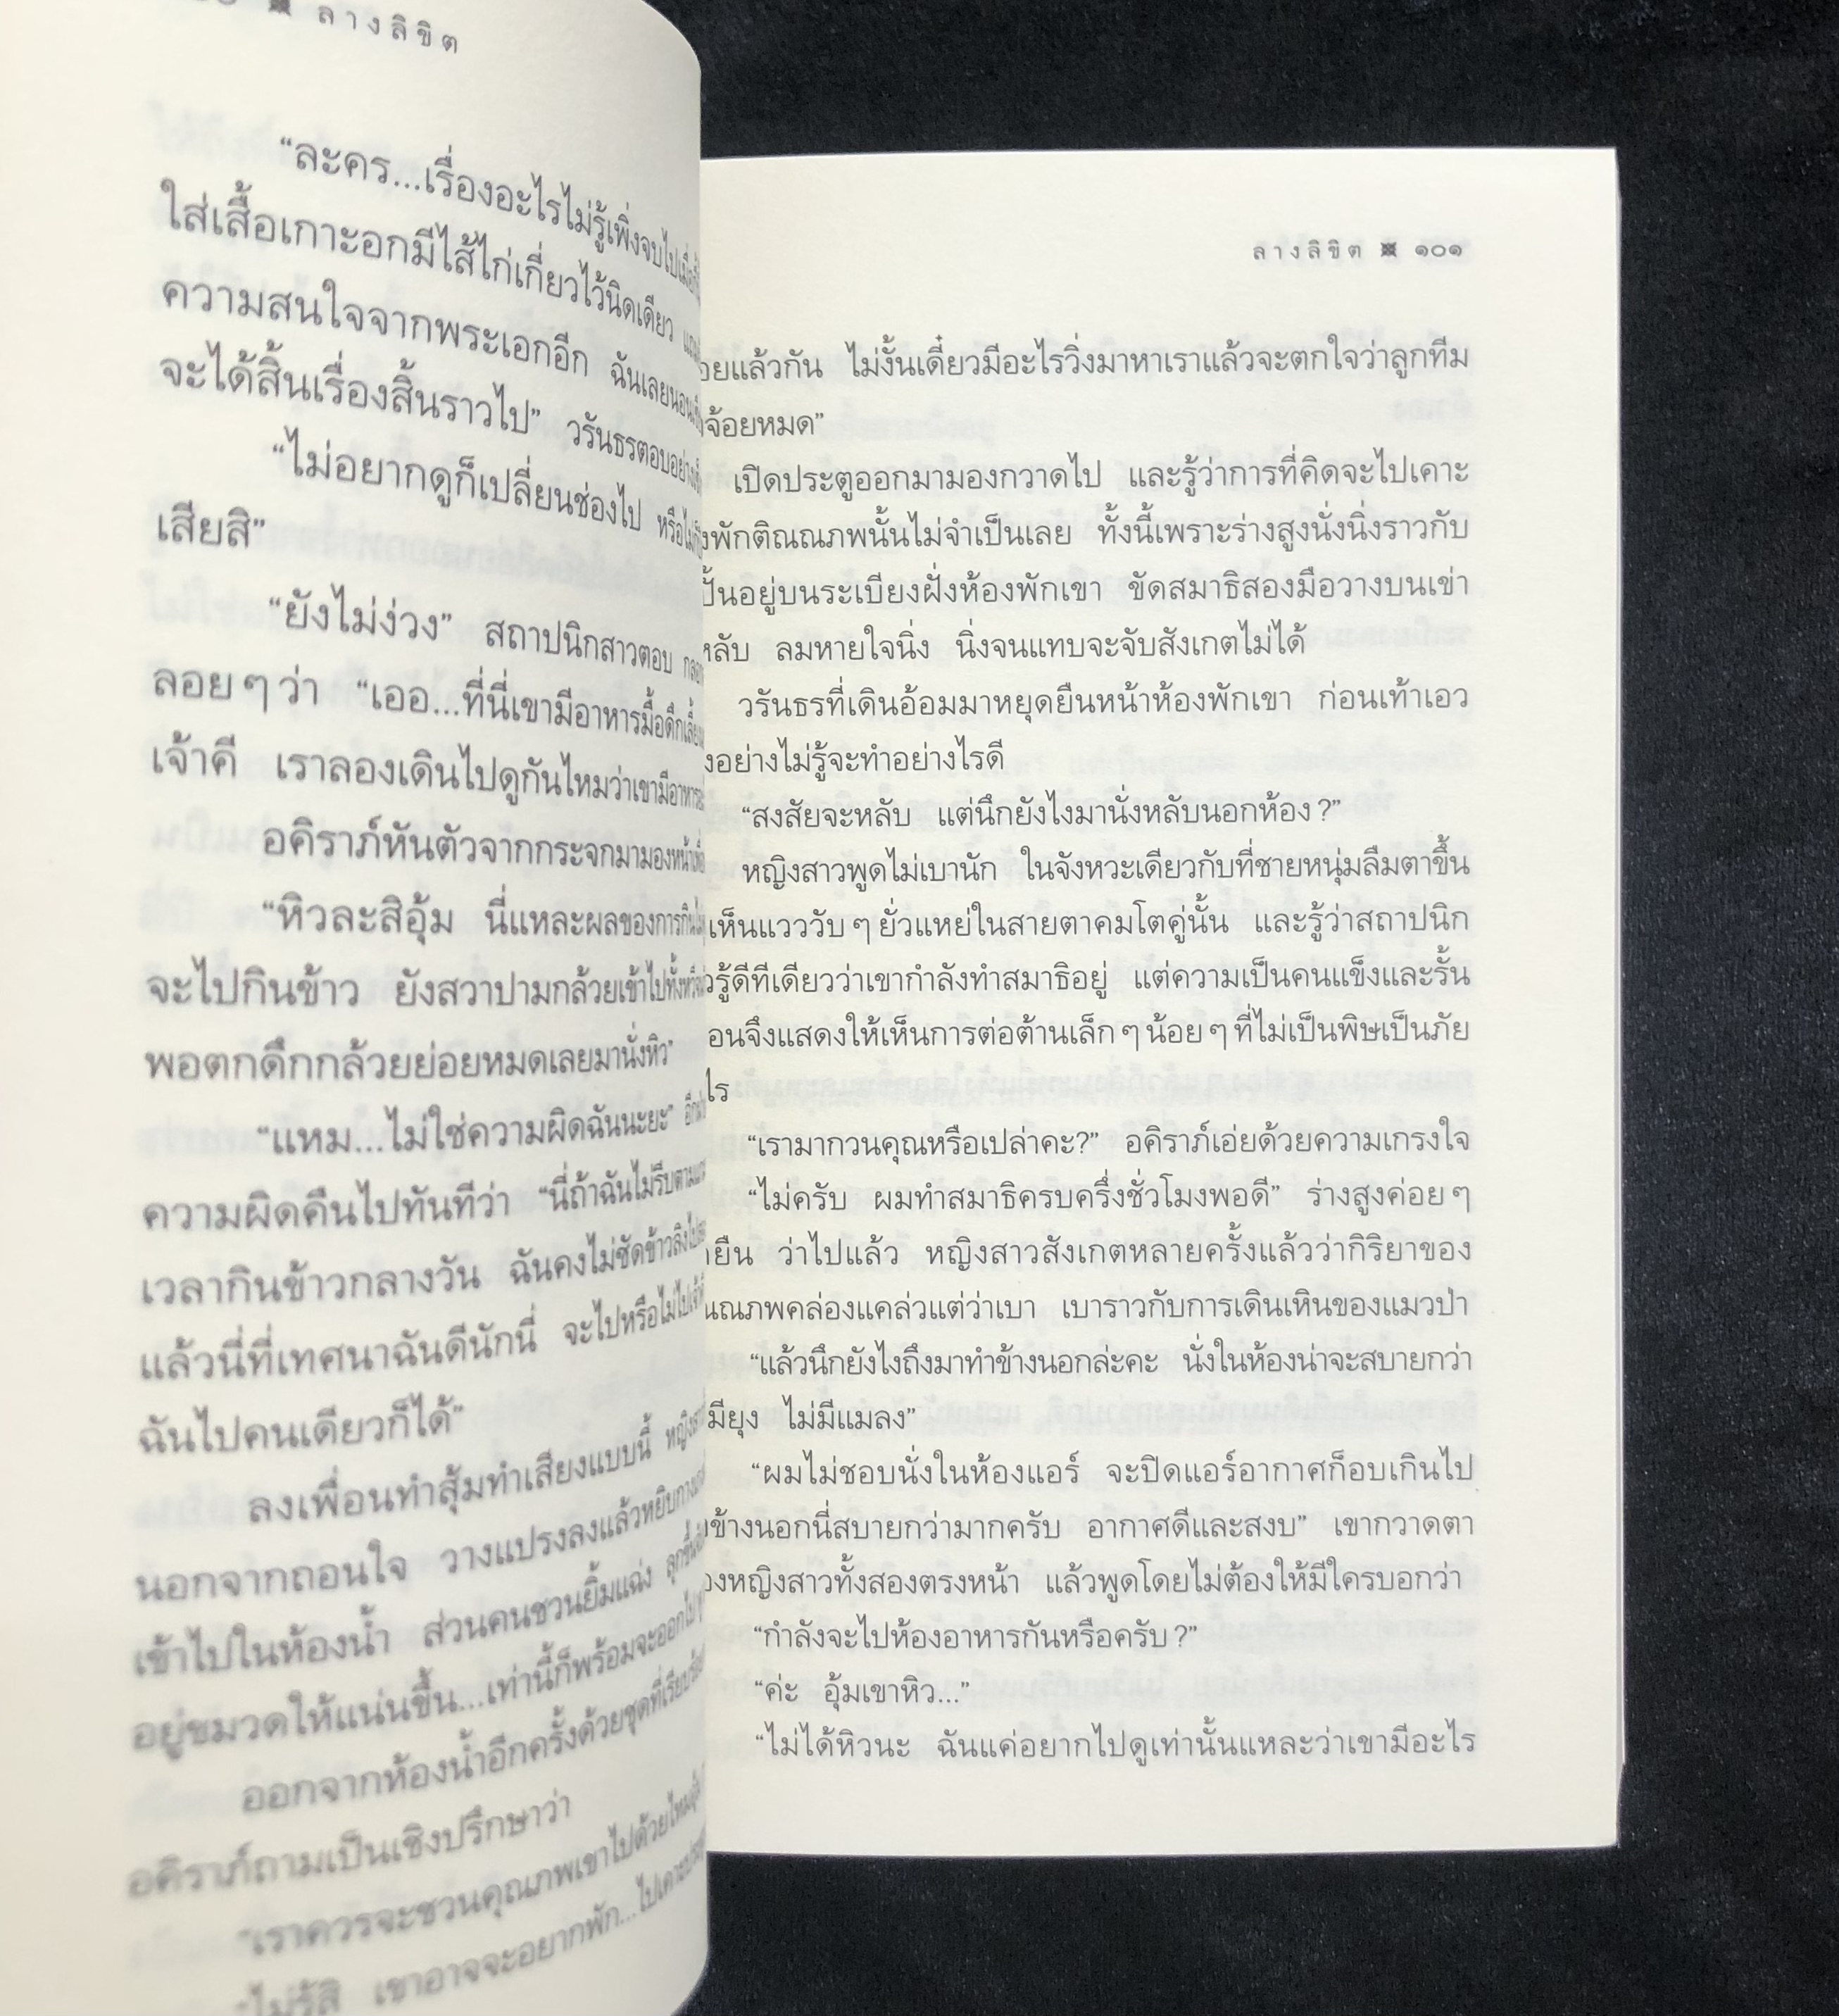 ลางลิขิต
“ละคร...เรื่องอะไรไม่รู้เพิ่งจบไป
ใส่เสื้อเกาะอกมีไส้ไก่เกี่ยวไว้นิดเดียว
ความสนใจจากพระเอกอีก ฉันเลยนอน
จะได้สิ้นเรื่องสิ้นราวไป” วรันธรตอบอย่าง
“ไม่อยากดูก็เปลี่ยนช่องไป
เสียสิ”
“ยังไม่ง่วง” สถาปนิกสาวตอบ
ลอย ๆ ว่า “เออ...ที่นี่เขามีอาหารมื้อดึก
เจ้าคี เราลองเดินไปดูกันไหมว่าเขามี
อคิราภ์หันตัวจากกระจกมามองหน้า
“หิวละสิอุ้ม นี่แหละผลของการกิน
จะไปกินข้าว ยังสวาปามกล้วยเข้าไป
พอตกดึกกล้วยย่อยหมดเลยมานั่งหิว”
“แหม...ไม่ใช่ความผิดฉันนะยะ”
ความผิดคืนไปทันทีว่า “นี่ถ้าฉันไม่รีบตาม
เวลากินข้าวกลางวัน ฉันคงไม่ซัดข้าวลิง
แล้วนี่ที่เทศนาฉันดีนักนี่ จะไปหรือไม่ไป
ฉันไปคนเดียวก็ได้”
ลงเพื่อนทำสุ้มทำเสียงแบบนี้
นอกจากถอนใจ วางแปรงลงแล้วหยิบ
เข้าไปในห้องน้ำ ส่วนคนชวนยิ้มแฉ่ง
อยู่ขมวดให้แน่นขึ้น...เท่านี้ก็พร้อมจะออกไป
ออกจากห้องน้ำอีกครั้งด้วยชุดที่
อคิราภ์ถามเป็นเชิงปรึกษาว่า
“เราควรจะชวนคุณภพเขาไปด้วยไหม
“ไม่รู้สิ เขาอาจจะอยากพัก...ไปเคาะ
ลางลิขิต ๑๐๑
แล้วกัน ไม่งั้นเดี๋ยวมีอะไรวิ่งมาหาเราแล้วจะตกใจว่าลูกทีม
จ้อยหมด”
เปิดประตูออกมามองกวาดไป และรู้ว่าการที่คิดจะไปเคาะ
พักติณณภพนั้นไม่จำเป็นเลย ทั้งนี้เพราะร่างสูงนั่งนิ่งราวกับ
ปั้นอยู่บนระเบียงฝั่งห้องพักเขา ขัดสมาธิสองมือวางบนเข่า
หลับ ลมหายใจนิ่ง นิ่งจนแทบจะจับสังเกตไม่ได้
วรันธรที่เดินอ้อมมาหยุดยืนหน้าห้องพักเขา ก่อนเท้าเอว
อย่างไม่รู้จะทำอย่างไรดี
“สงสัยจะหลับ แต่นึกยังไงมานั่งหลับนอกห้อง ?”
หญิงสาวพูดไม่เบานัก ในจังหวะเดียวกับที่ชายหนุ่มลืมตาขึ้น
เห็นแวววับ ๆ ยั่วแหย่ในสายตาคมโตคู่นั้น และรู้ว่าสถาปนิก
รู้ดีทีเดียวว่าเขากำลังทำสมาธิอยู่ แต่ความเป็นคนแข็งและรั้น
จึงแสดงให้เห็นการต่อต้านเล็ก ๆ น้อย ๆ ที่ไม่เป็นพิษเป็นภัย
ไร
“เรามากวนคุณหรือเปล่าคะ?” อคิราภ์เอ่ยด้วยความเกรงใจ
“ไม่ครับ ผมทำสมาธิครบครึ่งชั่วโมงพอดี” ร่างสูงค่อย ๆ
ยืน ว่าไปแล้ว หญิงสาวสังเกตหลายครั้งแล้วว่ากิริยาของ
ณภพคล่องแคล่วแต่ว่าเบา เบาราวกับการเดินเหินของแมวป่า
“แล้วนึกยังไงถึงมาทำข้างนอกล่ะคะ นั่งในห้องน่าจะสบายกว่า
มียุง ไม่มีแมลง”
“ผมไม่ชอบนั่งในห้องแอร์ จะปิดแอร์อากาศก็อบเกินไป
ข้างนอกนี่สบายกว่ามากครับ อากาศดีและสงบ” เขากวาดตา
หญิงสาวทั้งสองตรงหน้า แล้วพูดโดยไม่ต้องให้มีใครบอกว่า
“กำลังจะไปห้องอาหารกันหรือครับ ?”
“ค่ะ อุ้มเขาหิว...”
“ไม่ได้หิวนะ ฉันแค่อยากไปดูเท่านั้นแหละว่าเขามีอะไร